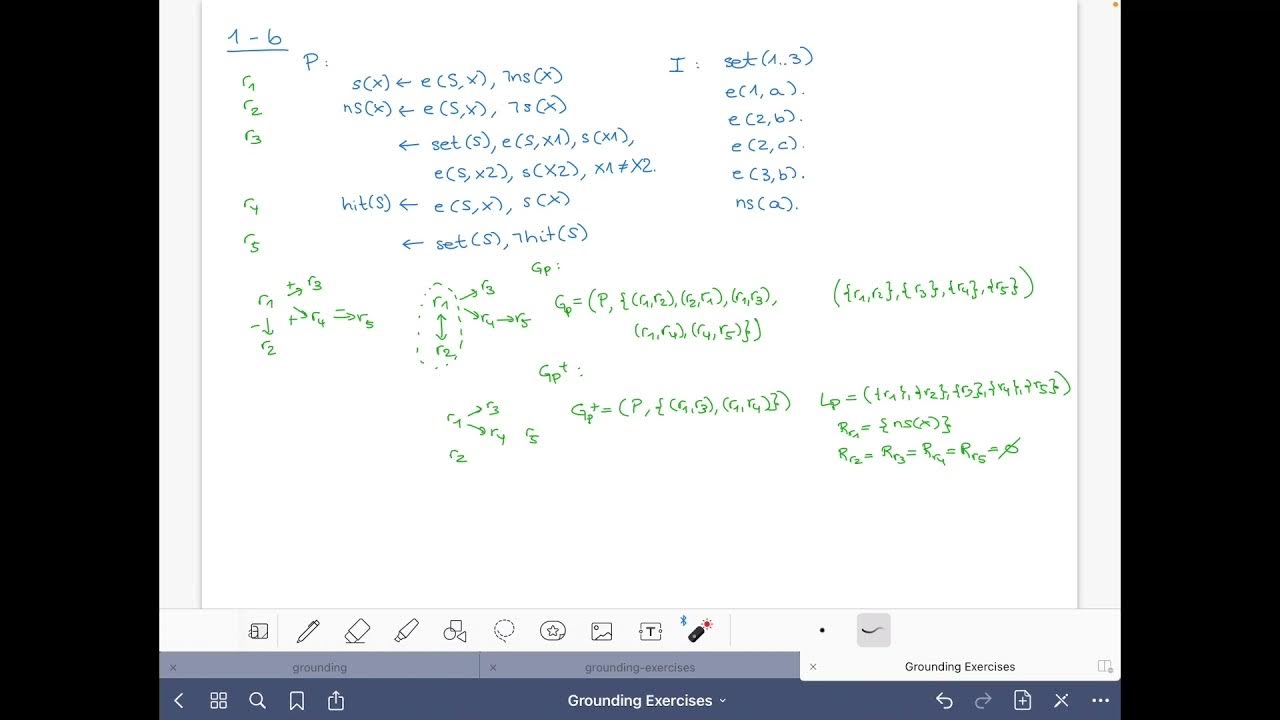 1 - b
P:
I: set(1..3)
r1 s(X) ← e(S,X), ¬ns(X)
e(1,a).
r2 ns(X) ← e(S,X), ¬s(X)
e(2,b).
r3 ← set(S), e(S,X1), s(X1),
e(2,c).
e(S,X2), s(X2), X1≠X2.
e(3,b).
r4 hit(S) ← e(S,X), s(X)
ns(a).
r5 ← set(S), ¬hit(S)
Gp:
r1 +→ r3
+→ r4 -→ r5
-↓
r2
r1 → r3
→ r4 → r5
↕
r2
Gp = (P, {(r1,r2),(r2,r1),(r1,r3),
(r1,r4),(r4,r5)})
({r1,r2},{r3},{r4},{r5})
Gp+:
r1 → r3
→ r4 r5
r2
Gp+ = (P, {(r1,r3),(r1,r4)})
Lp = ({r1},{r2},{r3},{r4},{r5})
Rr1 = {ns(X)}
Rr2 = Rr3 = Rr4 = Rr5 = ∅
T
grounding
grounding-exercises
Grounding Exercises
Grounding Exercises